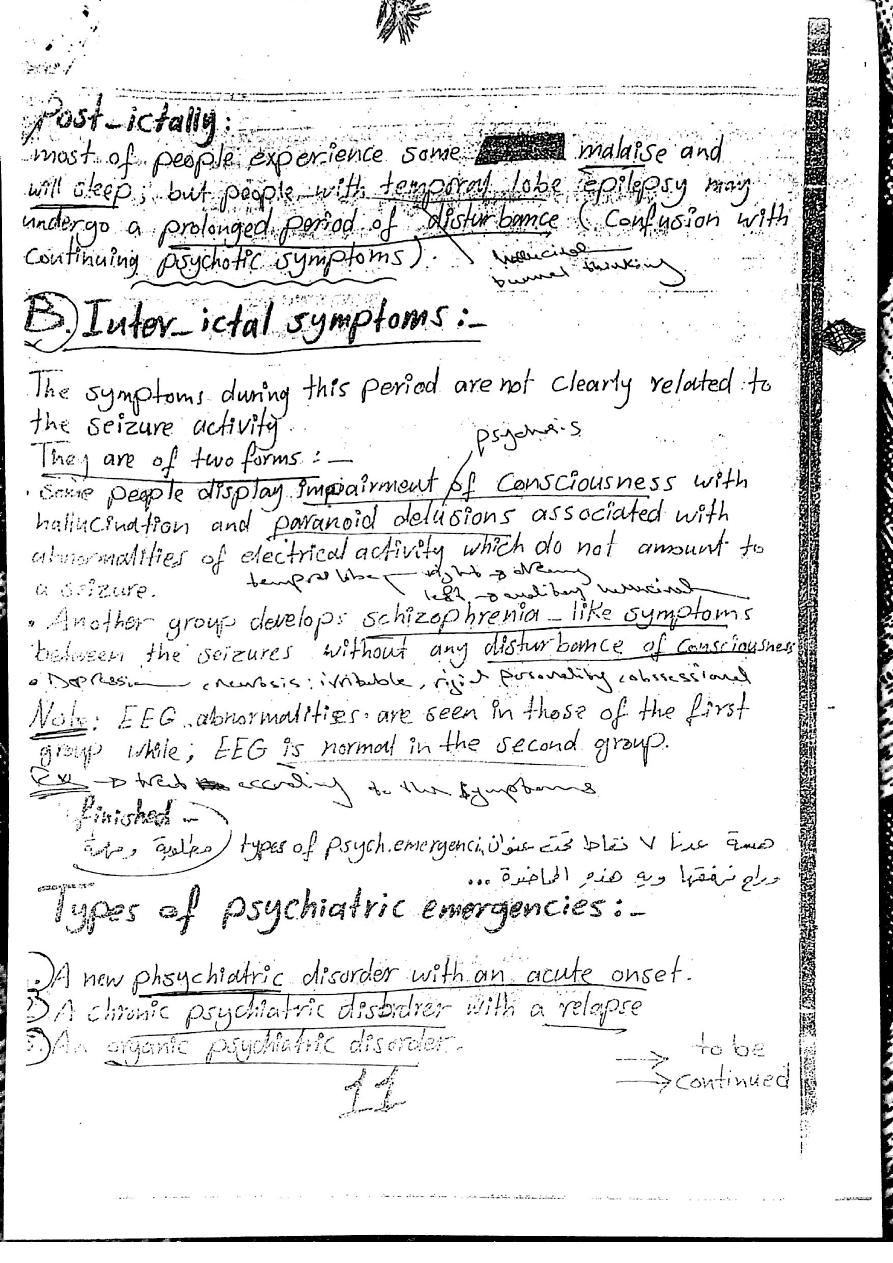 Post-ictally:
most of people experience some malaise and
will sleep; but people with temporay lobe epilepsy may
undergo a prolonged period of disturbance (Confusion with
Continuing psychotic symptoms).
thinking
B. Inter-ictal symptoms:-
The symptoms during this period are not clearly related to
the seizure activity.
psychosis
They are of two forms:-
. Some people display impairment of Consciousness with
hallucination and paranoid delusions associated with
abnormalities of electrical activity which do not amount to
a seizure.
right → dreamy
left → auditory
• Another group develops schizophrenia-like symptoms
between the seizures without any disturbance of consciousness
• Depression , neurosis: irritable, rigid personality, obssessional
Note: EEG abnormalities are seen in those of the first
group while; EEG is normal in the second group.
Rx → treat according to the symptoms
finished -
هسة عدنا ٧ نقاط تحت عنوان types of psych.emergenci (مطلوبة ومهمة)
وراح نرفقها وية هذه المحاضرة ...
Types of psychiatric emergencies:-
1. A new phsychiatric disorder with an acute onset.
2) A chronic psychiatric disordrer with a relapse
3. An organic psychiatric disorder.
→ to be
→ continued
11